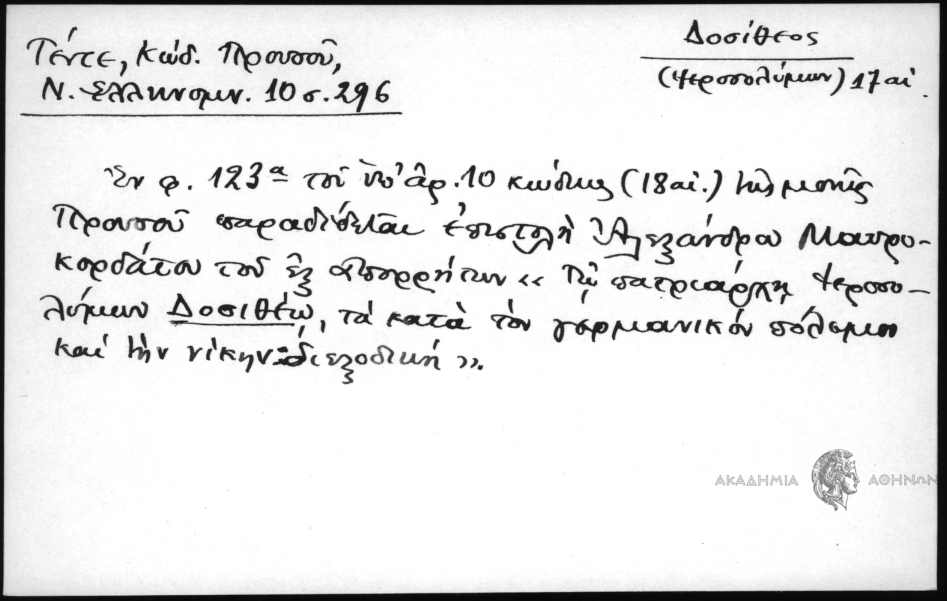 Δοσίθεος
(Ἱεροσολύμων) 17 αἰ.
Τέντε, Κώδ. Προυσοῦ,
Ν. Ἑλληνομν. 10 σ. 296
Ἐν φ. 123α τοῦ ὑπ' ἀρ. 10 κώδικος (18 αἰ.) τῆς μονῆς
Προυσοῦ παραδίδεται ἐπιστολὴ Ἀλεξάνδρου Μαυρο-
κορδάτου τοῦ ἐξ ἀπορρήτων « Τῷ πατριάρχῃ Ἱεροσο-
λύμων Δοσιθέῳ, τὰ κατὰ τὸν γερμανικὸν πόλεμον
καὶ τὴν νίκην διεξοδική ».
ΑΚΑΔΗΜΙΑ ΑΘΗΝΩΝ